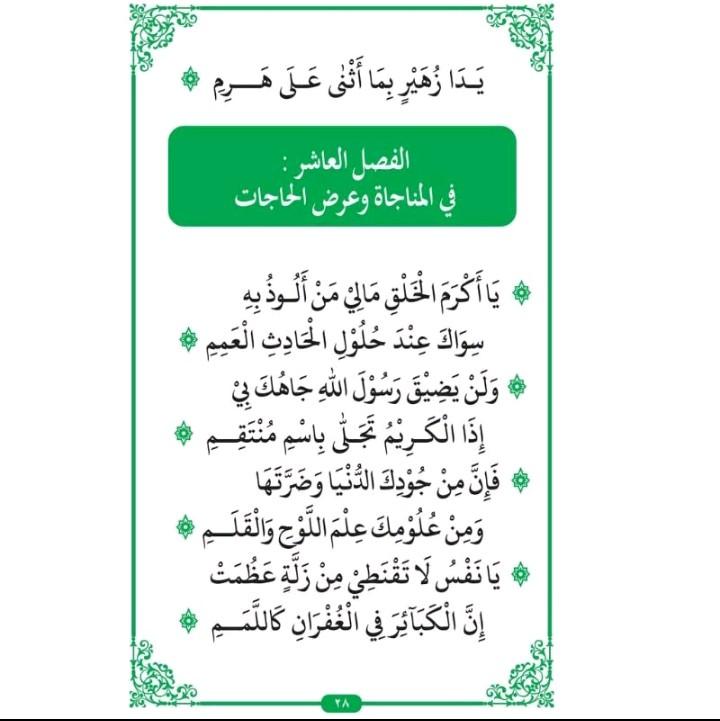 يَدَا زُهَيْرٍ بِمَا أَثْنٰى عَلَى هَرِمِ
الفصل العاشر :
في المناجاة وعرض الحاجات
يَا أَكْرَمَ الْخَلْقِ مَالِيْ مَنْ أَلُوذُ بِهِ
سِوَاكَ عِنْدَ حُلُوْلِ الْحَادِثِ الْعَمِمِ
وَلَنْ يَضِيْقَ رَسُوْلَ اللهِ جَاهُكَ بِيْ
إِذَا الْكَرِيْمُ تَجَلّٰى بِاسْمِ مُنْتَقِمِ
فَإِنَّ مِنْ جُوْدِكَ الدُّنْيَا وَضَرَّتَهَا
وَمِنْ عُلُوْمِكَ عِلْمَ اللَّوْحِ وَالْقَلَمِ
يَا نَفْسُ لَا تَقْنَطِيْ مِنْ زَلَّةٍ عَظُمَتْ
إِنَّ الْكَبَآئِرَ فِي الْغُفْرَانِ كَاللَّمَمِ
٢٨